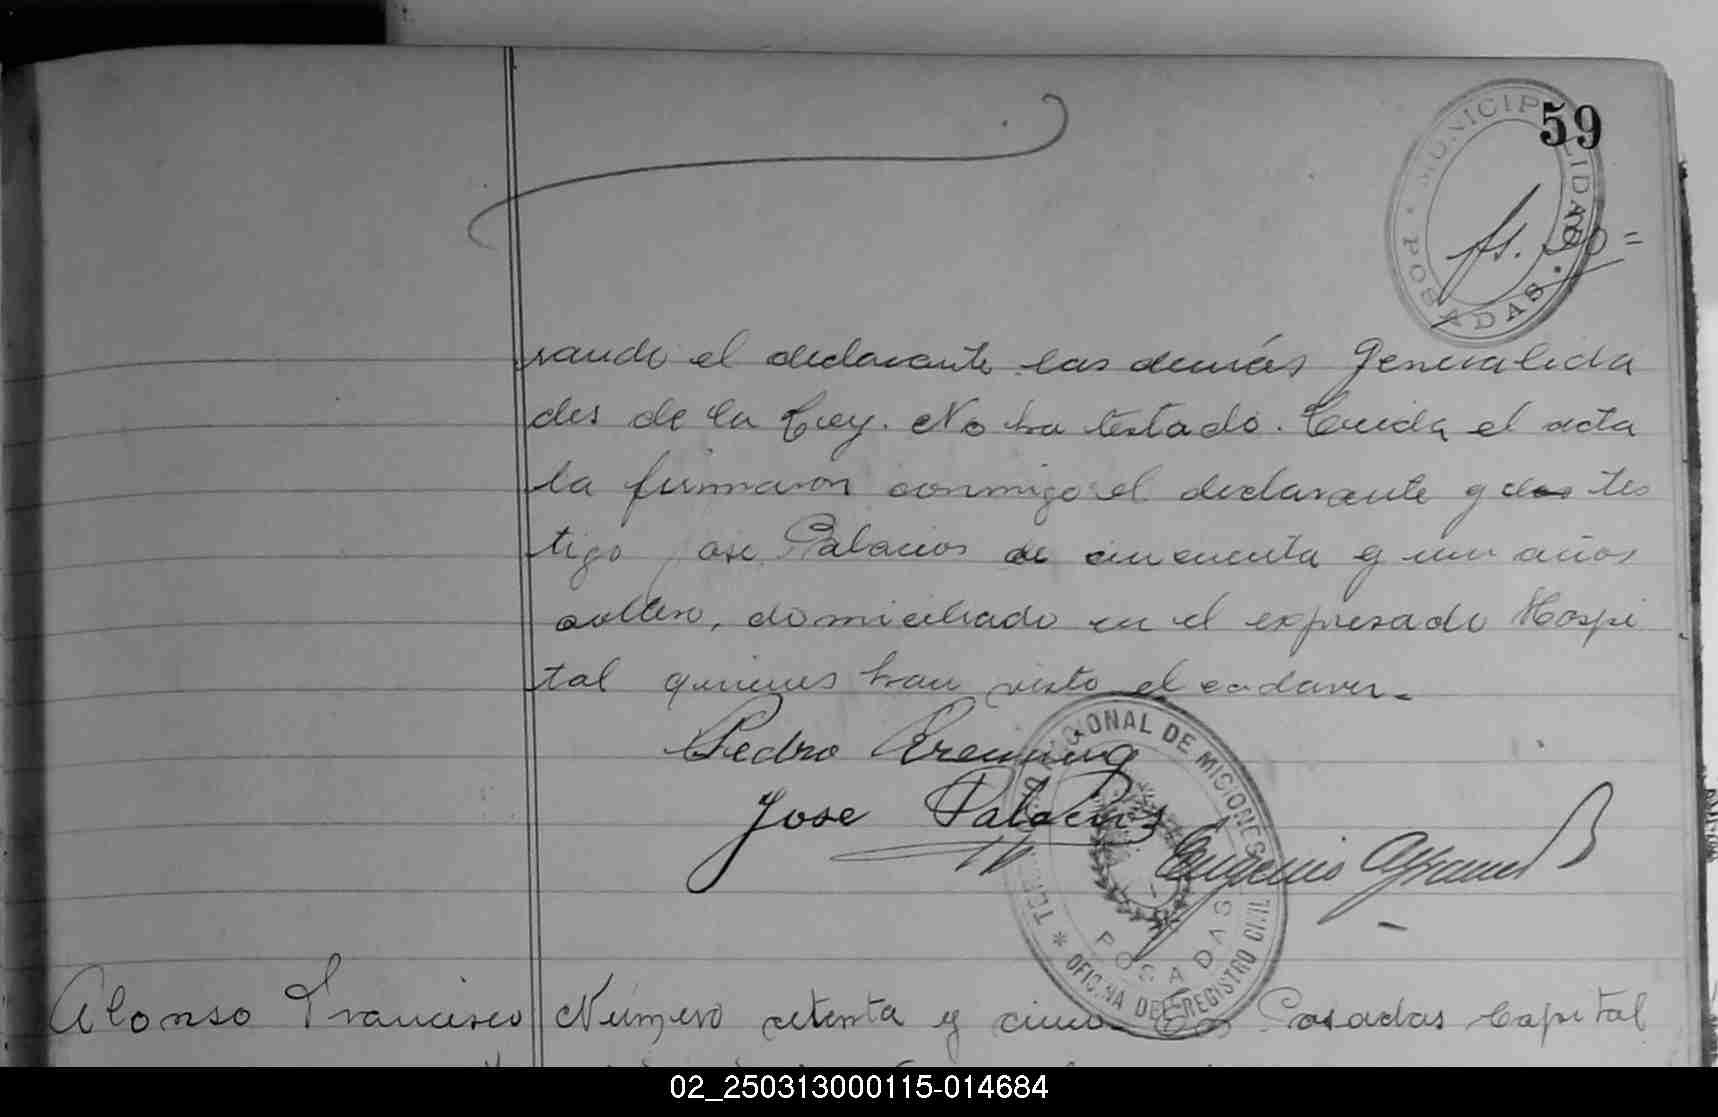 59
MUNICIPALIDAD
POSADAS
fs.
rando el declarante las demás generalida
des de la Ley. No ha testado. Leida el acta
la firmaron conmigo el declarante y tes
tigo José Palacios de cincuenta y un años
soltero, domiciliado en el expresado Hospi
tal quienes han visto el cadaver.-
Pedro
Jose Palacios
Eugenio
NACIONAL DE MICIONES
OFICINA DEL REGISTRO CIVIL
POSADAS
Alonso Francisco
Número setenta y cinco En Posadas Capital
02_250313000115-014684